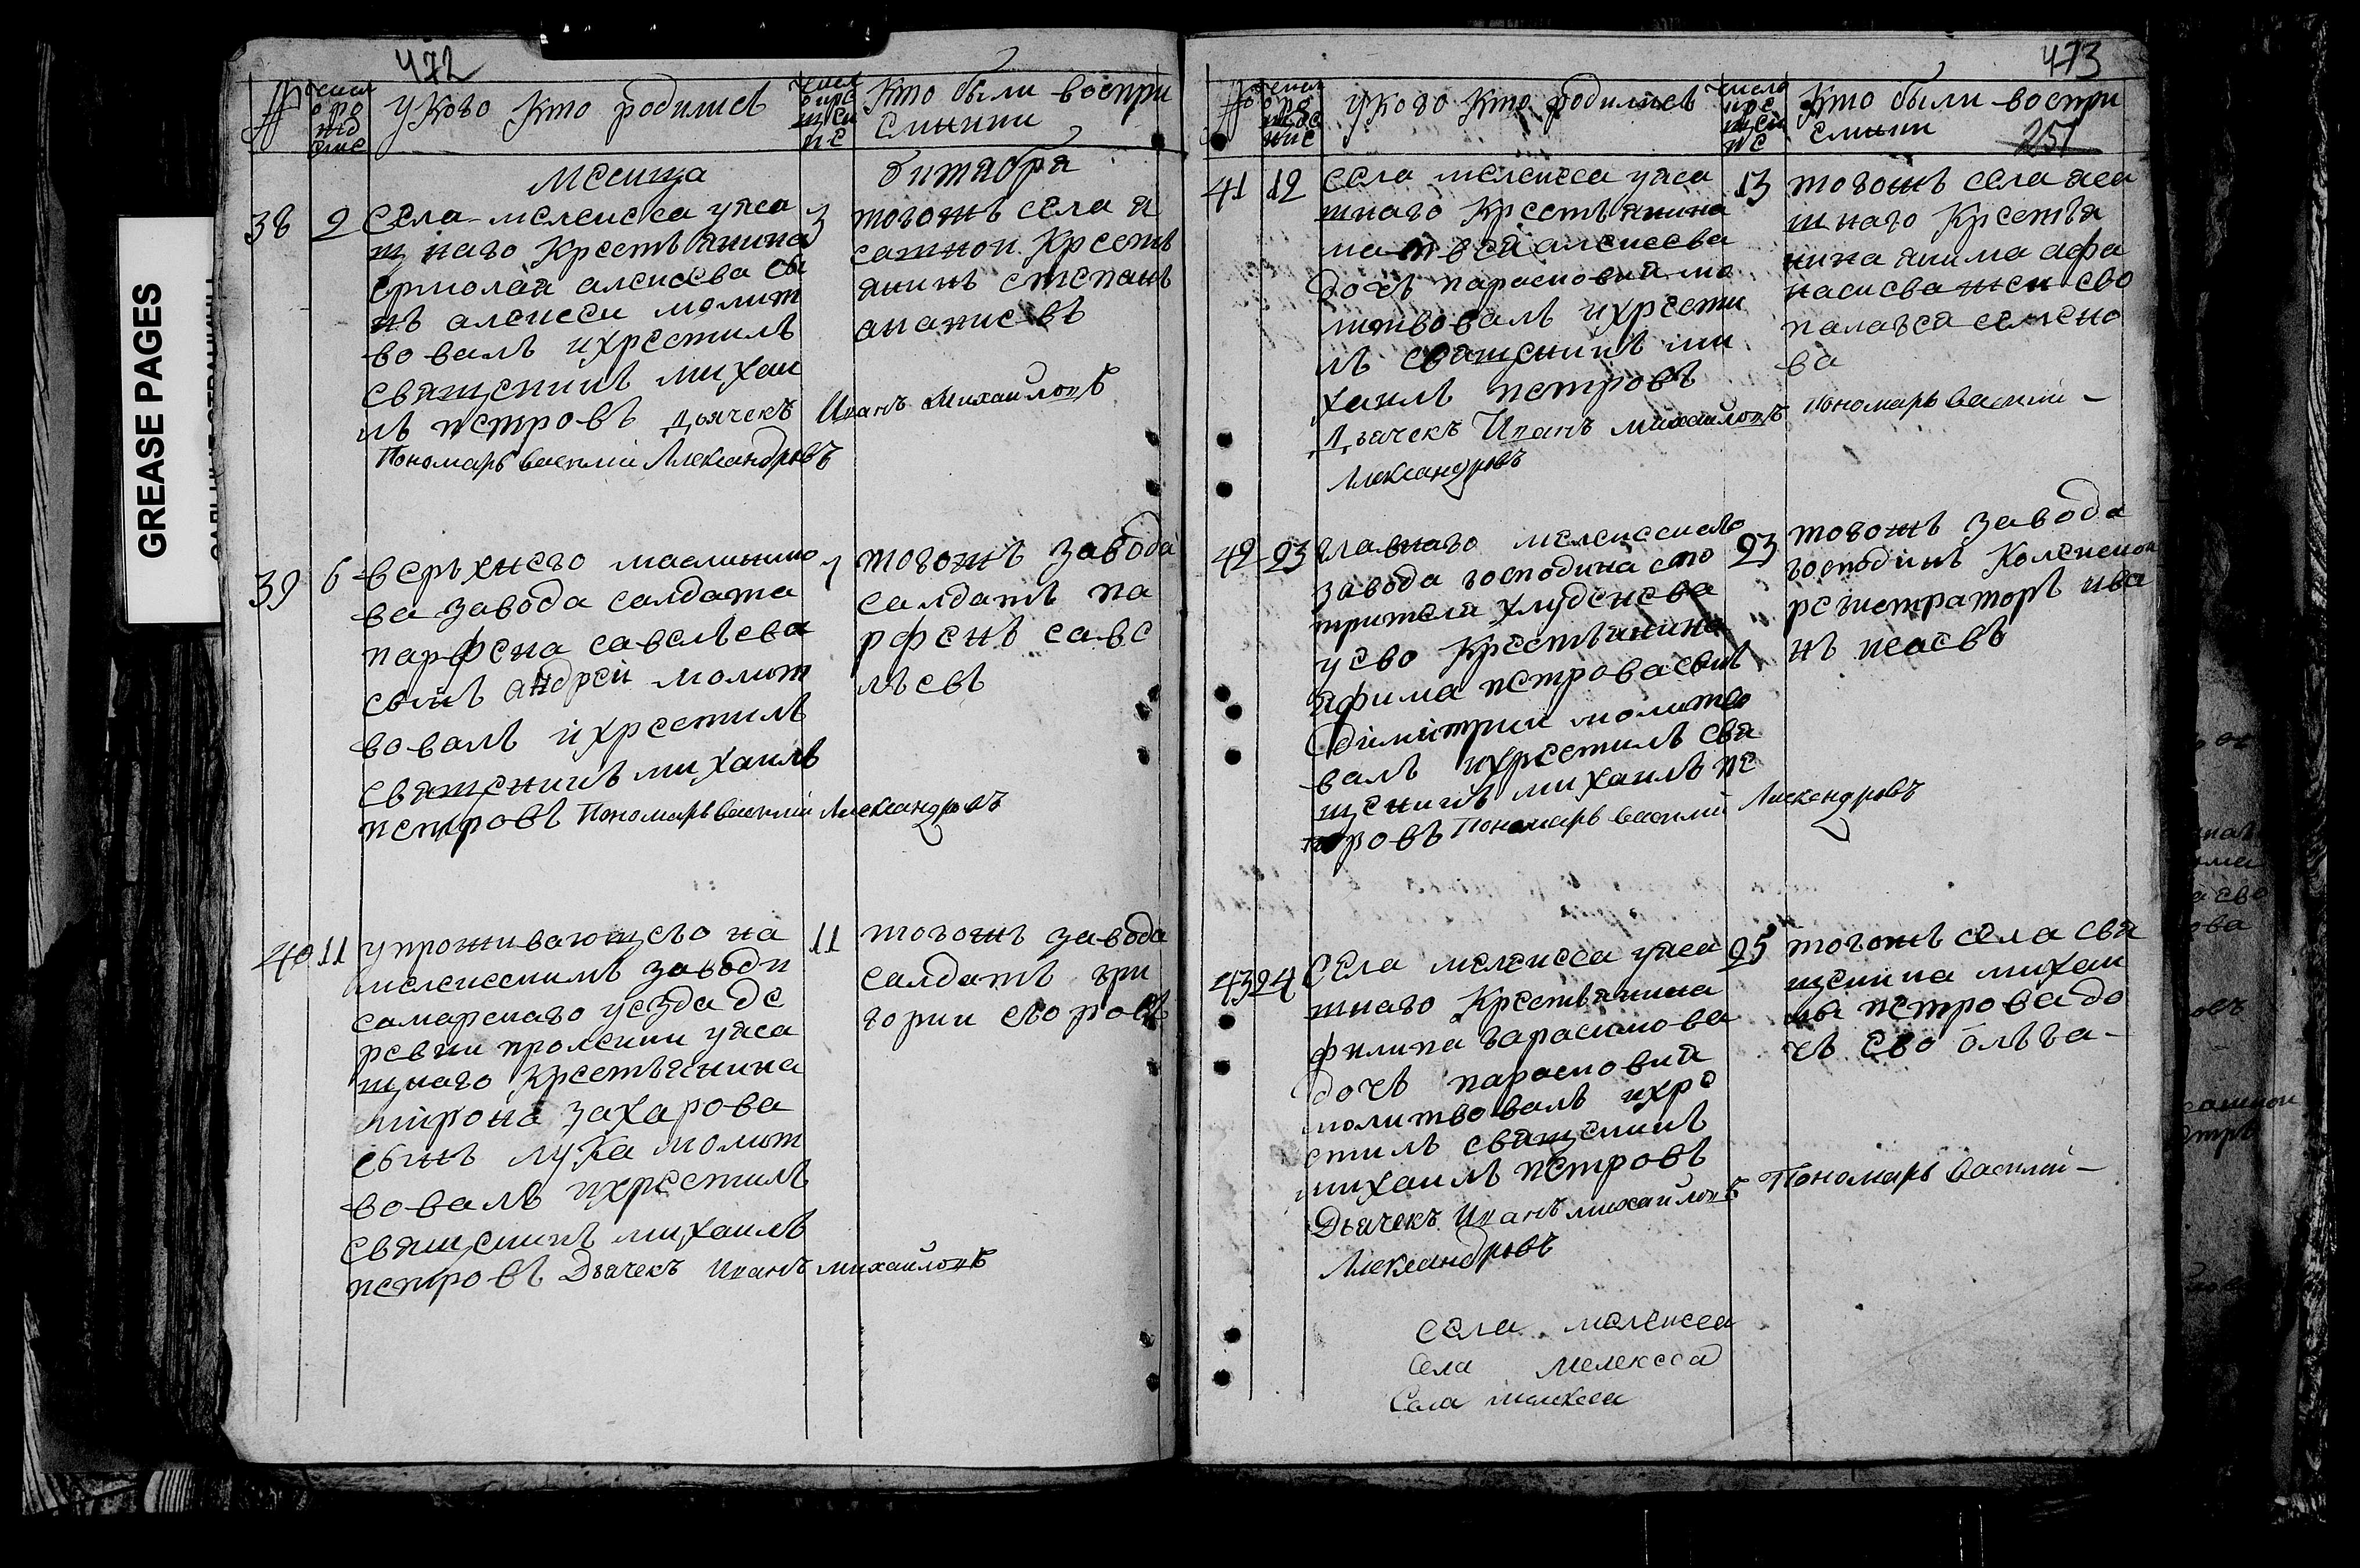 GREASE PAGES
472
№
число рождение
У Кого Кто родился
число крещени не
Кто были воспри
емники
месяца октября
38
2
села мелекеса ужа
шнаго Крестьянина
ермолая алексеева сы
нъ алексеи молит
вовалъ ихрестилъ
священикъ михаи
лъ петровъ Дьячекъ Иванъ Михаиловъ
Пономарь василий Александровъ
3
тогожъ села я
сашнои Крестъ
янинъ степанъ
ананиевъ
39
6
верьхнего
ва завода салдата
парфена савельева
сынъ андреи молит
вовалъ ихрестилъ
священикъ михаилъ
петровъ Пономарь василий Александровъ
7
тогожъ завода
салдатъ па
рфенъ саве
льевъ
40
11
у проживающего на
мелекескимъ заводи
самарскаго уезда де
ревни
шнаго Крестьянина
мирона захарова
сынъ лука молит
вовалъ ихрестилъ
свяшеникъ михаилъ
петровъ Дьячекъ Иванъ михаиловъ
11
тогожъ завода
салдатъ гри
гории егоровъ
473
№
число рождение
У Кого Кто родился
число крещение
Кто были воспри
емники
251
41
12
села мелекеса
шнаго Крестьянина
матвея алексеева
дочь парасковия мо
литвовалъ ихрести
лъ священикъ ми
хаилъ петровъ
Дьячекъ Иванъ михаиловъ Пономарь василий
Александровъ
13
тогожъ села яса
шнаго Крестья
нина якима афа
насиева жен ево
палагея семено
ва
42
23
главнаго мелекескаго
завода господина смо
трителя хлуденева
у ево Крестьянина
афима петрова сынъ
димитрии молитво
валъ ихрестилъ свя
щеникъ михаилъ пе
тровъ Пономарь василий Александровъ
23
тогожъ завода
господинъ Колежскои
регистраторъ ива
нъ исаевъ
43
24
села мелекеса
шнаго Крестьянина
филипа гарасимова
дочь парасковия
молитвовалъ ихре
стилъ священикъ
михаилъ петровъ
Дьячекъ Иванъ михаиловъ Пономарь василий
Александровъ
25
тогожъ села свя
щеника михаи
лы петрова до
чь ево ольга
села мелекеса
Села Мелекеса
Села мелекеса